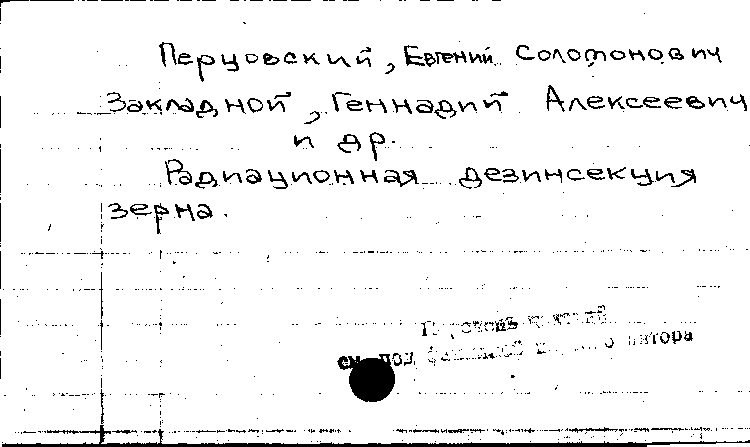 Перцовский, Евгений Соломонович
Закладной, Геннадий Алексеевич
и др.
Радиационная дезинсекция
зерна.
см. под автора